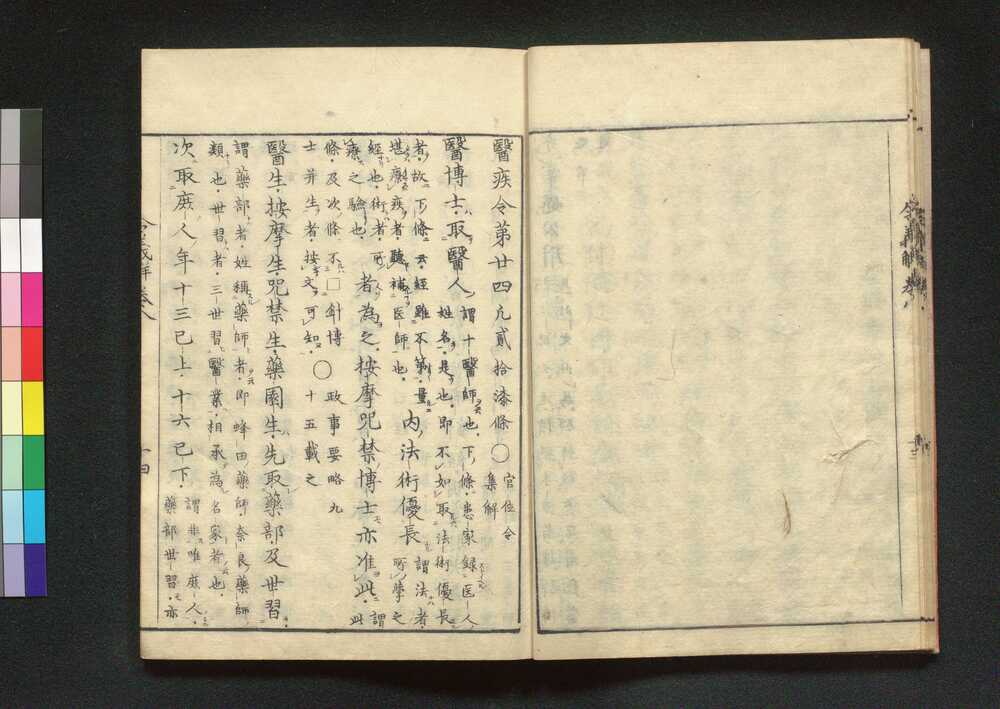 令義解卷八
醫疾令第廿四凢貳拾漆條〇官位令集解
醫博士取醫人謂十醫師也下條患家録医人
姓名是也即不如取法術優長
者故下條云經雖不第量
堪療疾者聽補医師也内法術優長謂法者
經也術者可所學之
療之驗也者為之按摩咒禁博士亦准此謂此
條及次條不□針博
士并生者按文可知〇政事要略九十五載之
醫生按摩生咒禁生藥園生先取藥部及世習
謂藥部者姓稱藥師者即蜂田藥師奈良藥師
類也世習者三世習醫業相承為名家者也
次取庶人年十三已上十六已下謂非唯庶人
藥部世習亦
令義解卷八
十四